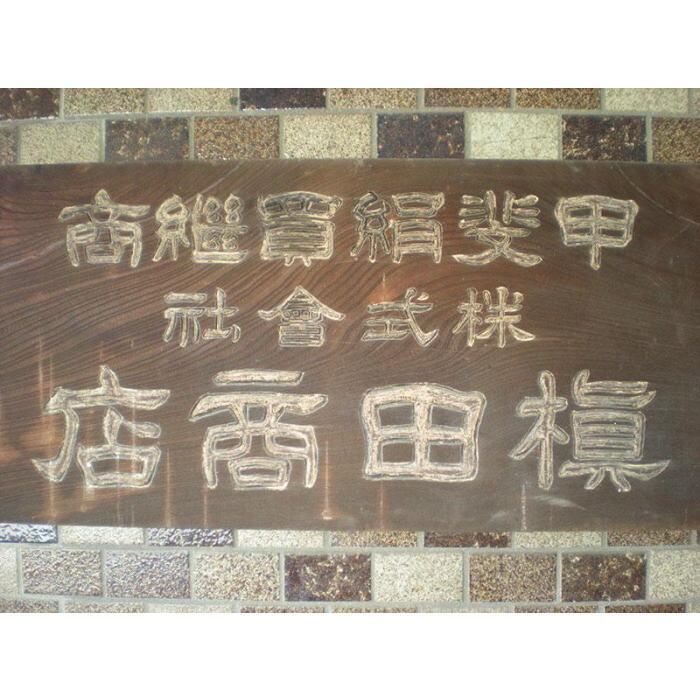 甲斐絹買継商
株式會社
槇田商店